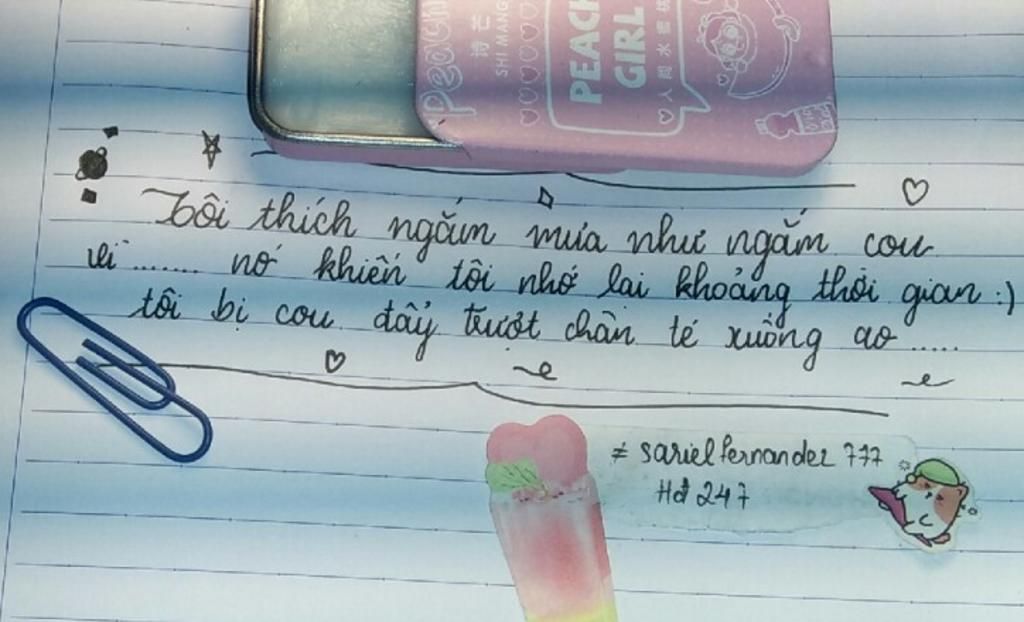 Peach
诗芒
SHI MANG
PEACH
GIRL
人间水蜜桃
Tôi thích ngắm mưa như ngắm cou
vì ....... nó khiến tôi nhớ lại khoảng thời gian :)
tôi bị cou đẩy trượt chân té xuống ao .....
≠ sarielfernandez 777
Hd 247